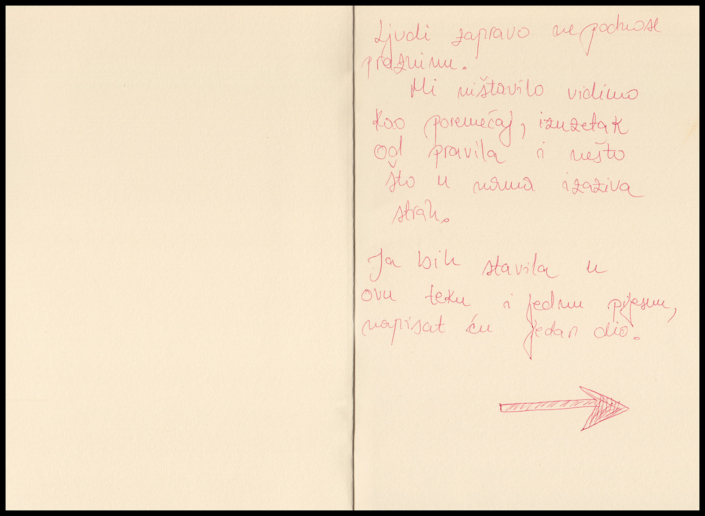 Ljudi zapravo ne podnose
prazninu.
Mi ništavilo vidimo
kao poremećaj, izuzetak
od pravila i nešto
što u nama izaziva
strah.
Ja bih stavila u
ovu teku i jednu pjesmu,
napisat ću jedan dio.